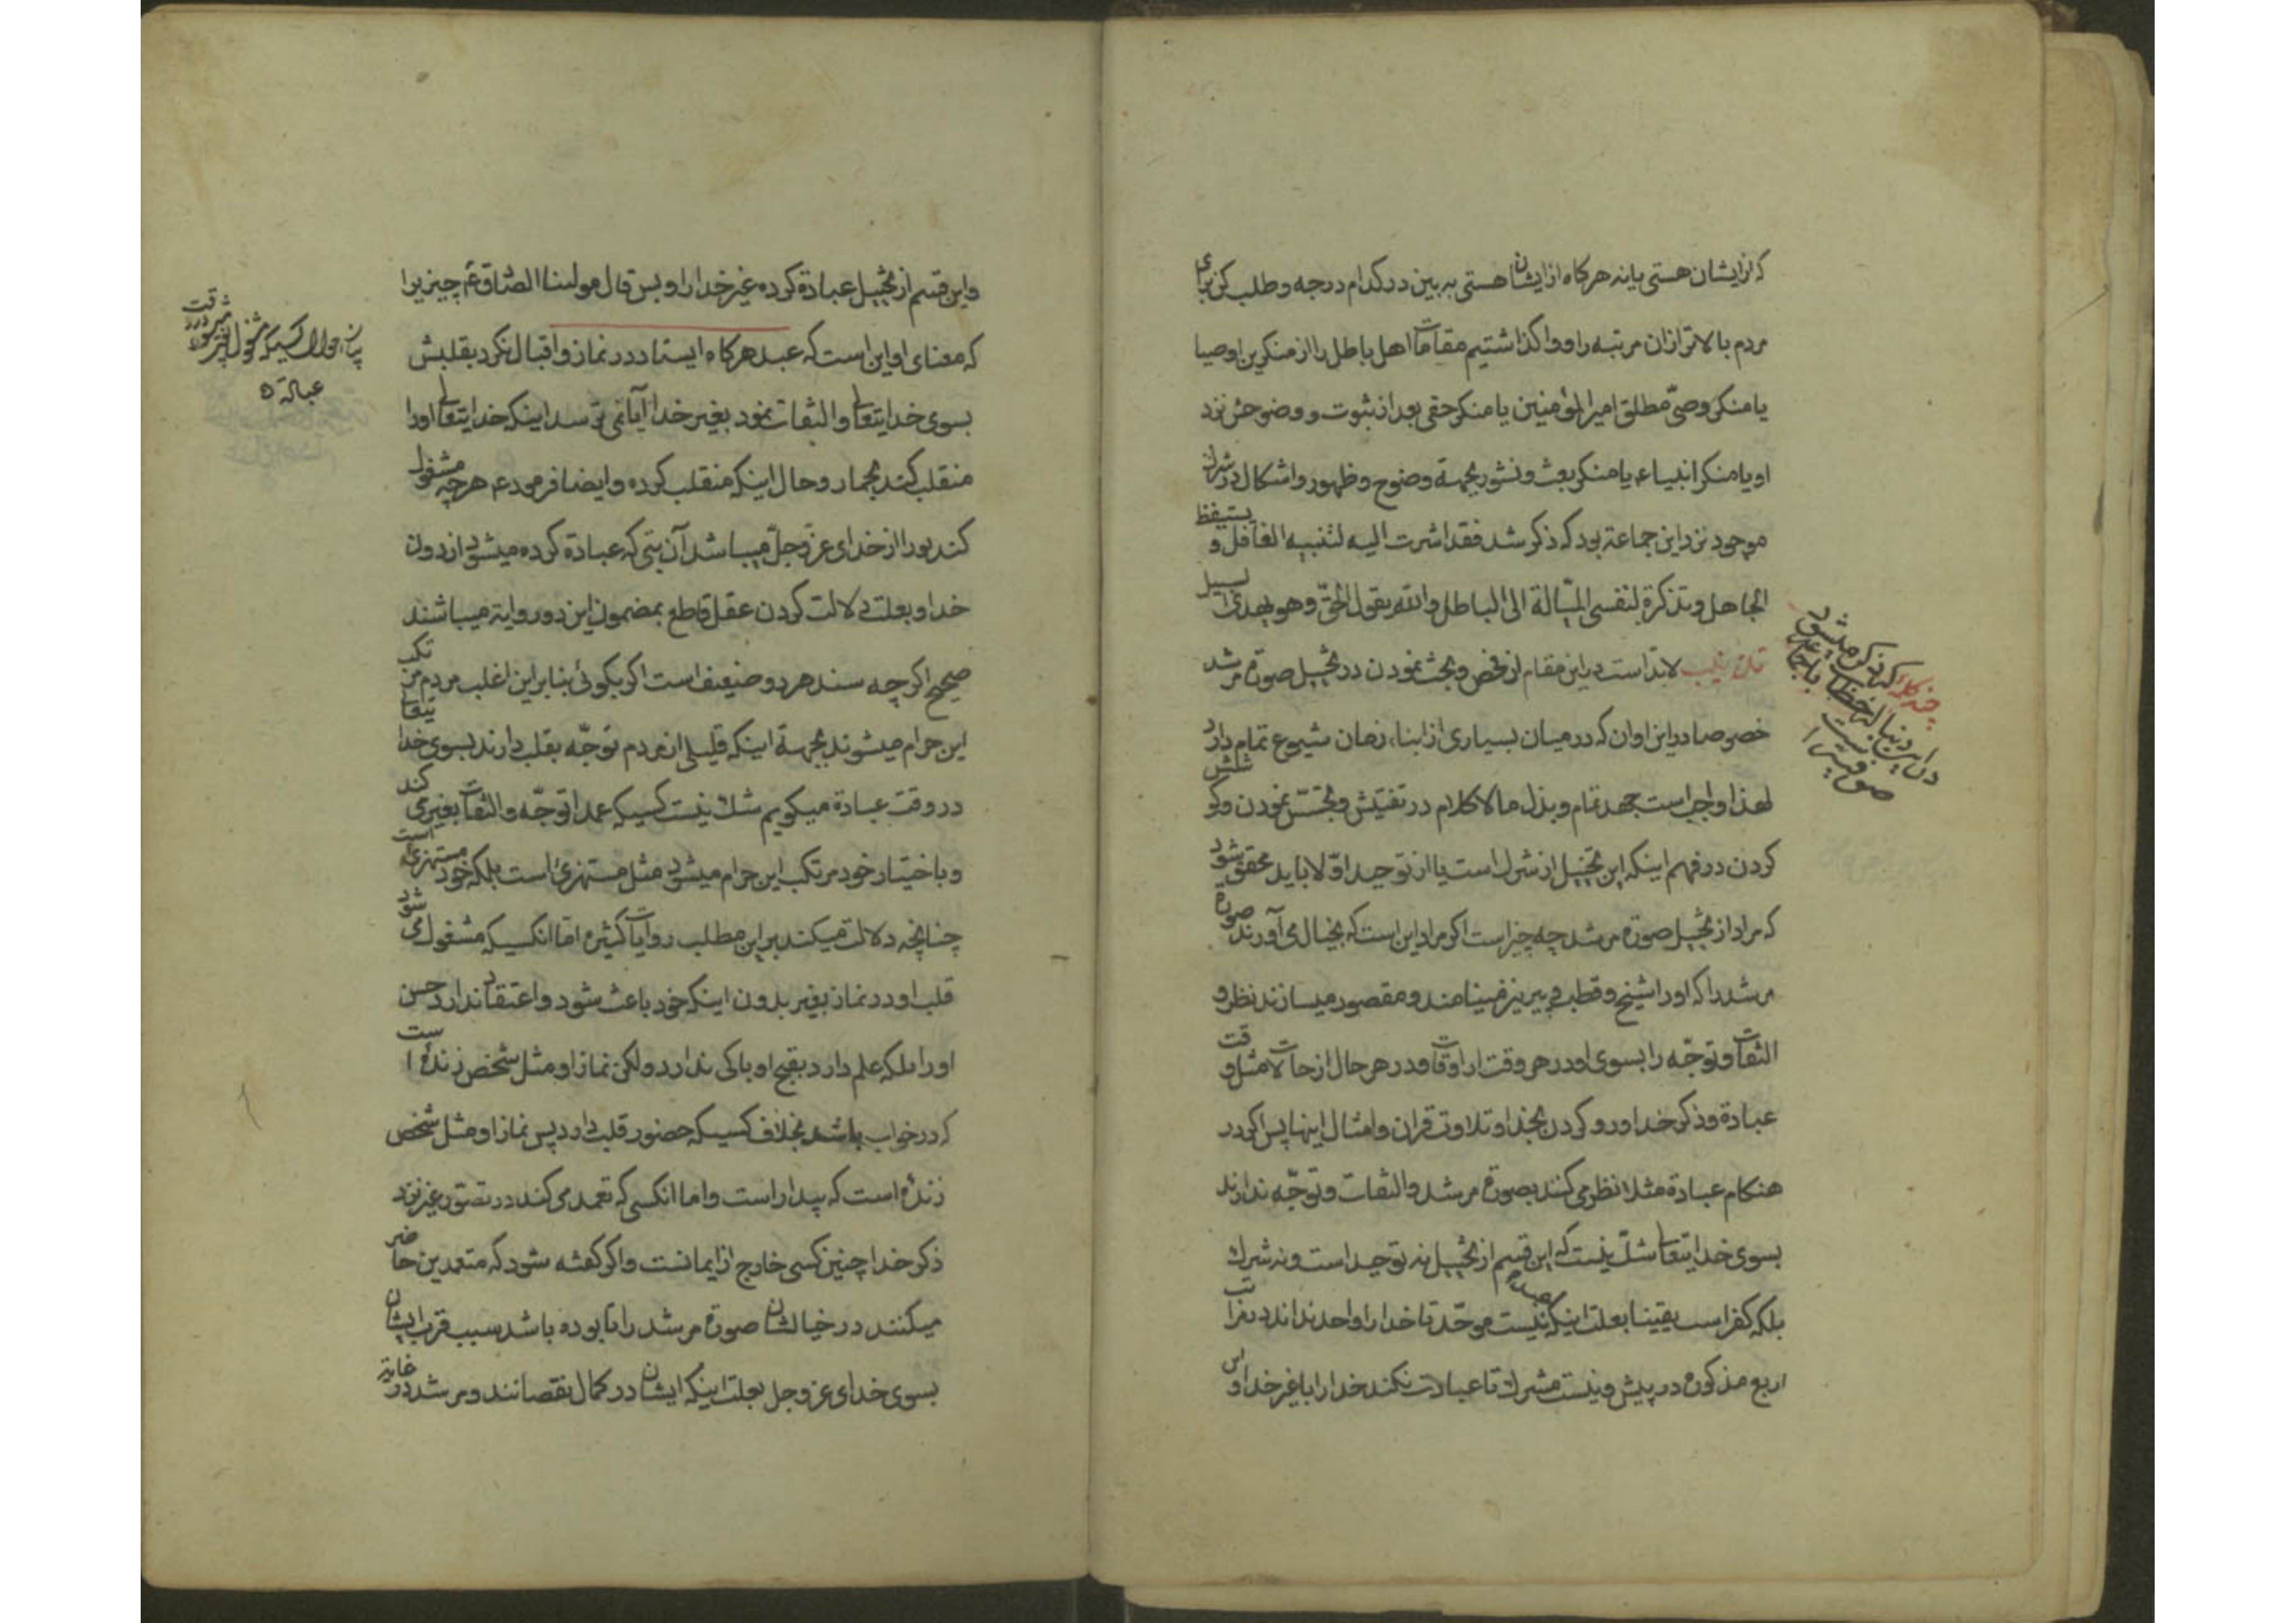 که از ایشان هستی یا نه هرکاه از ایشان هستی به بین در کدام درجه و طلب کن برای
مردم بالاتر از ان مرتبه را و واکذاشتیم مقامات اهل باطل را از منکرین اوصیا
یا منکر وصیّ مطلق امیر المؤمنین یا منکر حقی بعد از ثبوت و وضوحش نزد
او یا منکر انبیاء یا منکر بعث و نشور بجهة وضوح و ظهور و اشکال در
موجود نزد این جماعة بود که ذکر شد فقد اشرت الیه لتنبیه الغافل و یستیقظ
الجاهل و تذکرة لنفسی المیّالة الی الباطل و الله یقول الحقّ و هو یهدی السبیل
لابدّ است در این مقام از فحص و بحث نمودن در تخییل صورة مرشد
خصوصا در این اوان که در میان بسیاری از ابناء زمان شیوع تمام دارد
لهذا واجب است جهد تمام و بذل مالاکلام در تفتیش و تجسّس نمودن و کوشش
کردن در فهم اینکه این تخییل از شرك است یا از توحید اوّلا باید محقق شود
که مراد از تخییل صورة مرشد چه چیز است اکر مراد این است که بخیال می آورند صورة
مرشد را که او را شیخ و قطب و پیر نیز مینامند و مقصور میسازند نظر و
التفات و توجّه را بسوی او در هر وقت از اوقات و در هر حال از حالات مثل وقت
عبادة و ذکر خدا و رو کردن بخدا و تلاوت قران و امثال اینها پس اکر در
هنکام عبادة مثلا نظر می کند بصورة مرشد و التفات و توجّه ندارند
بسوی خدایتعالی شكّ نیست که این قسم از تخییل نه توحید است و نه شرك
بلکه کفر است یقینا بعلت اینکه نیست موحّد تا خدا را واحد نداند در مراتب
اربع مذکوره در پیش و نیست مشرك تا عبادت نکند خدا را با غیر خدا و این
که ذکر میشود
واین قسم از تخییل عبادة کرده غیر خدا را و بس قال مولینا الصّادق ع چیزیرا
که معنای او این است که عبد هرکاه ایستاد در نماز و اقبال نکرد بقلبش
بسوی خدایتعالی و التفات نمود بغیر خدا آیا نمی ترسد اینکه خدایتعالی او را
منقلب کند بحمار و حال اینکه منقلب کرده و ایضا فرمود ع هرچه مشغول
کند تو را از خدای عزّ و جلّ میباشد آن بتی که عبادة کرده میشود از دون
خدا و بعلت دلالت کردن عقل قاطع بمضمون این دو روایة میباشند
صحیح اکرچه سند هر دو ضعیف است اکر بکوئی بنا بر این اغلب مردم مرتکب
این حرام میشوند بجهة اینکه قلیلی از مردم توجّه بقلب دارند بسوی خدا یتعالی
در وقت عبادة میکویم شك نیست کسیکه عمدا توجّه و التفات بغیر می کند
و باختیار خود مرتکب این حرام میشود مثل مستهزئ است بلکه خود مستهزئ است
چنانچه دلالت میکند بر این مطلب روایات کثیره امّا انکسیکه مشغول می شود
قلب او در نماز بغیر بدون اینکه خود باعث شود و اعتقاد ندارد حسن
او را بلکه علم دارد بقبح او باکی ندارد ولکن نماز او مثل شخص زندهٔ است
که در خواب باشد بخلاف کسیکه حضور قلب دارد پس نماز او مثل شخص
زندهٔ است که بیدار است و اما انکسی که تعمد می کند در تصوّر غیر نزد
ذکر خدا چنین کسی خارج از ایمانست و اکر کفته شود که متعمدین حاضر
میکنند در خیالشان صورة مرشد را تا بوده باشد سبب قرب ایشان
بسوی خدای عز و جل بعلت اینکه ایشان در کمال نقصانند و مرشد در غایة